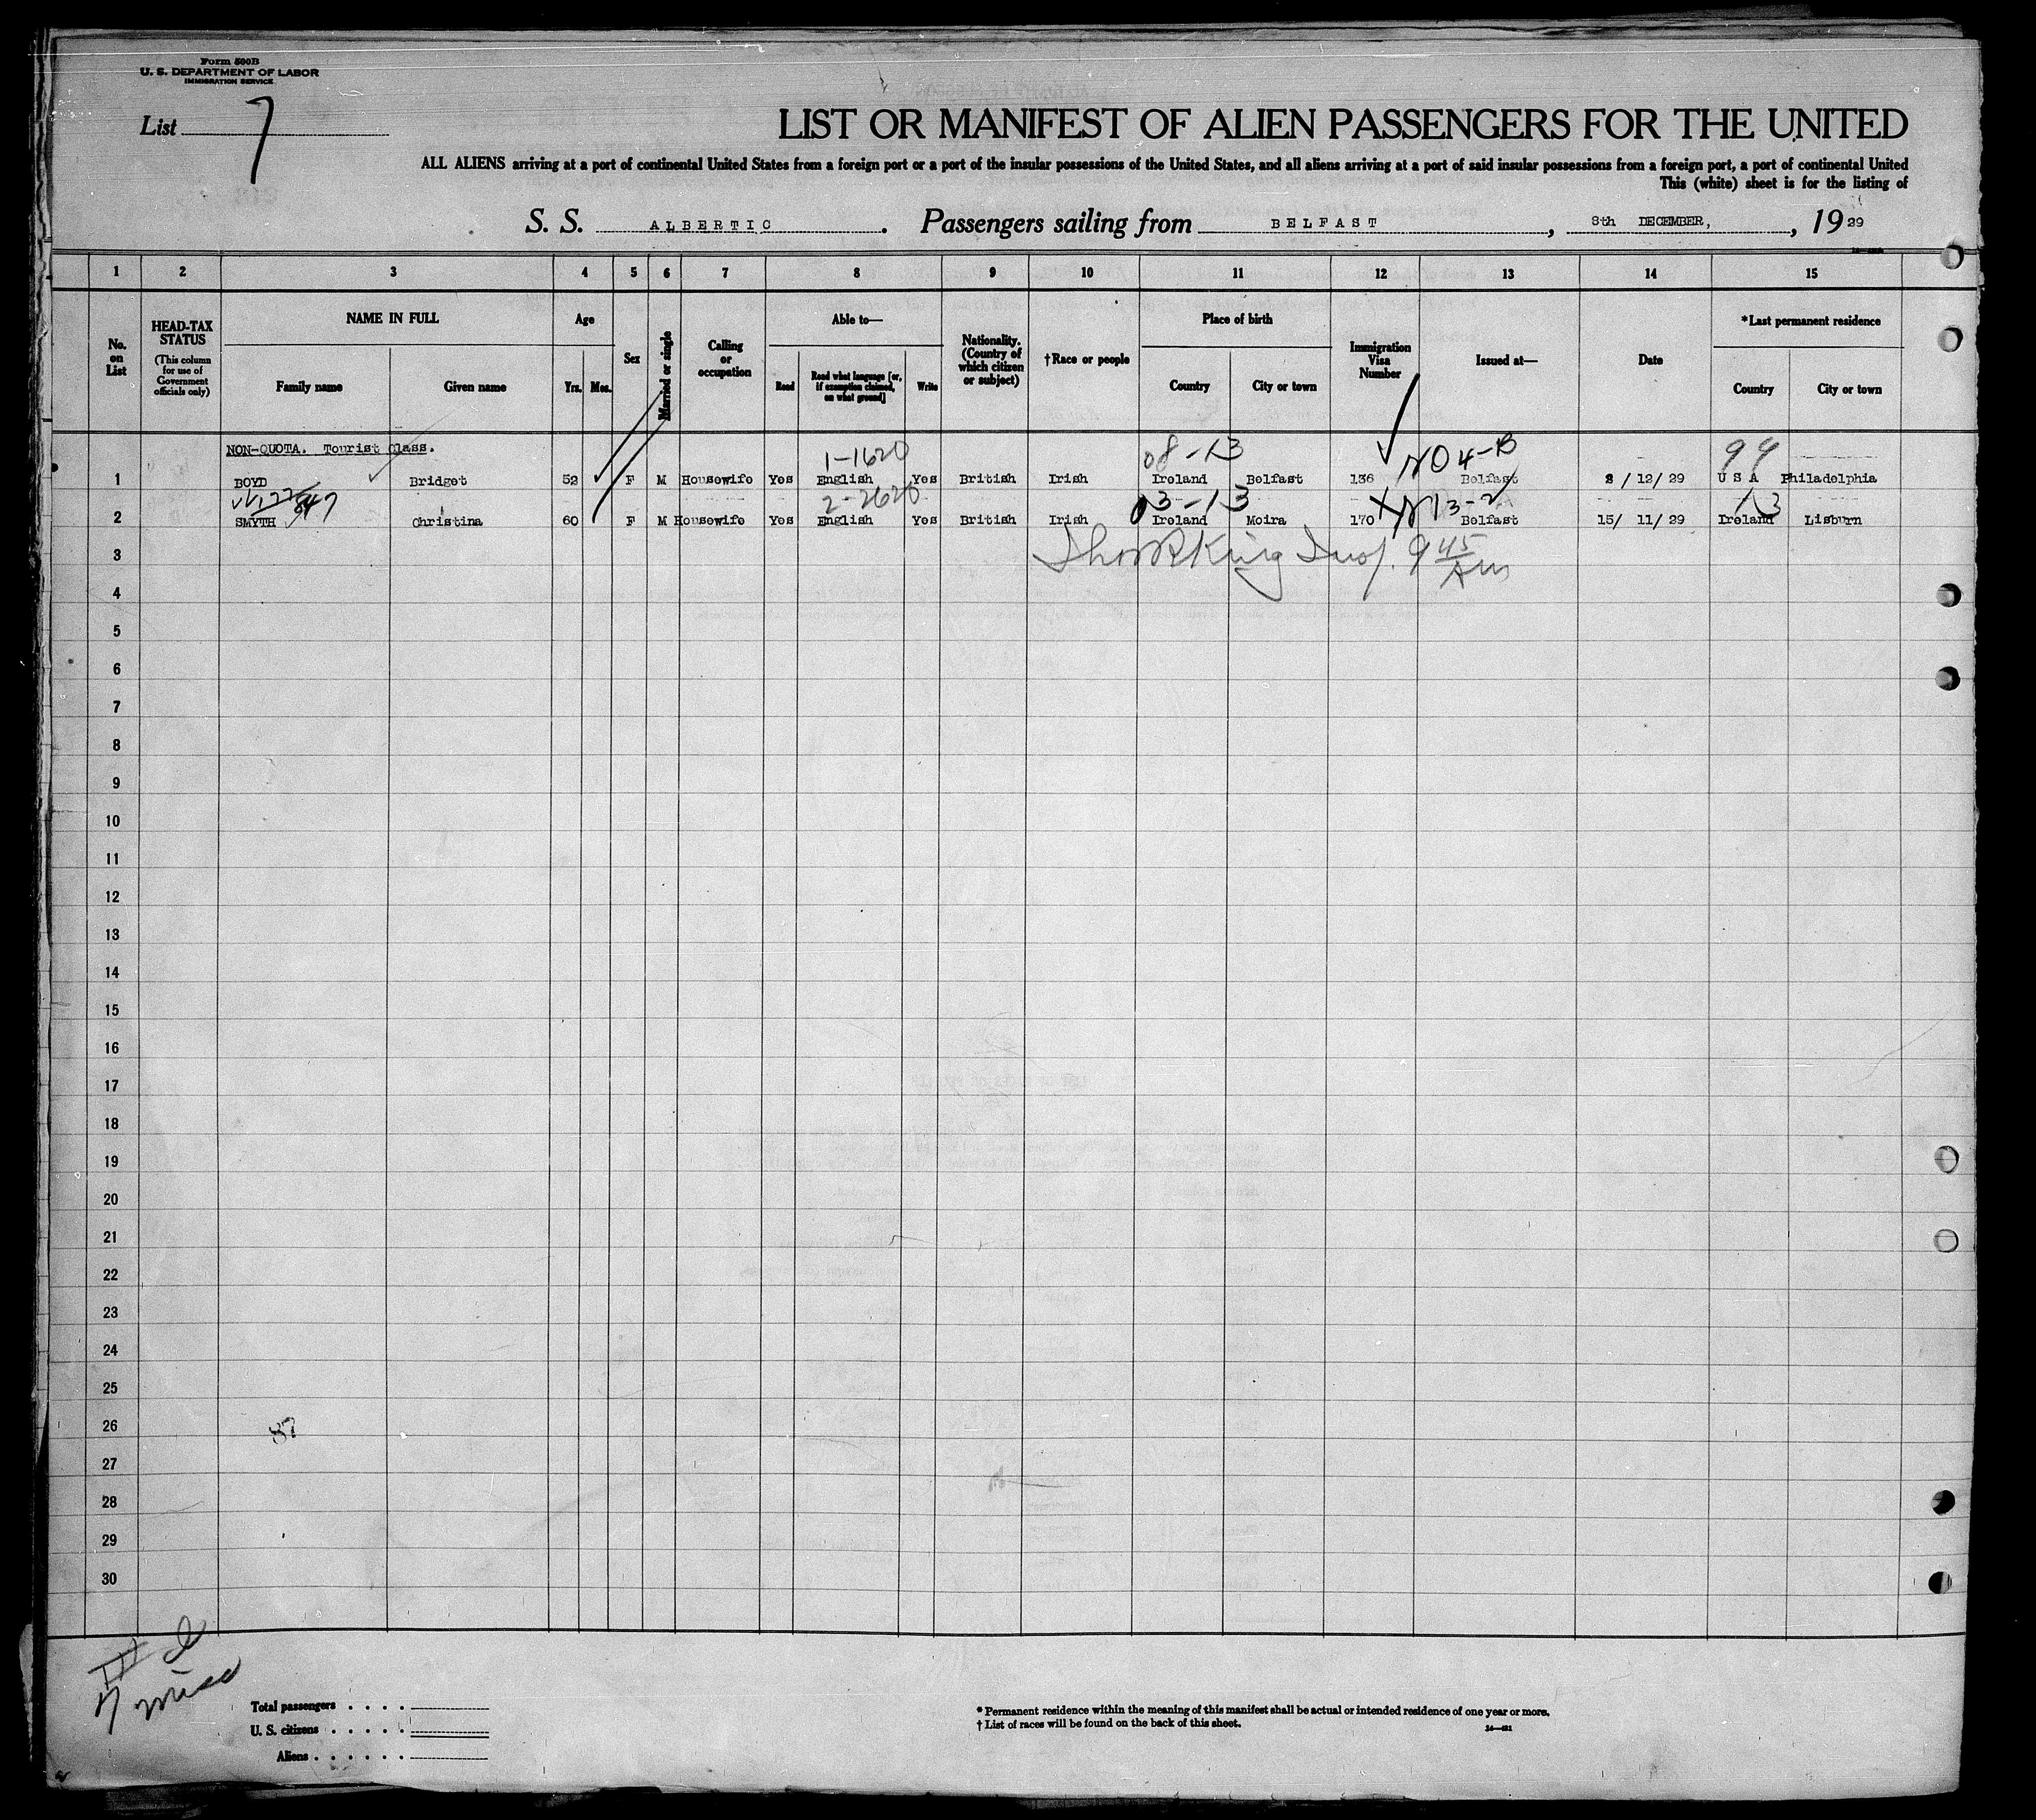 Form 500B
U. S. DEPARTMENT OF LABOR
IMMIGRATION SERVICE
List 7
LIST OR MANIFEST OF ALIEN PASSENGERS FOR THE UNITED
ALL ALIENS arriving at a port of continental United States from a foreign port or a port of the insular possessions of the United States, and all aliens arriving at a port of said insular possessions from a foreign port, a port of continental United
This (white) sheet is for the listing of
S. S. ALBERTIC. Passengers sailing from BELFAST, 8th DECEMBER, , 19 29
1 2 3 4 5 6 7 8 9 10 11 12 13 14 15
No. on List
HEAD-TAX STATUS
(This column for use of Government officials only)
NAME IN FULL
Family name Given name
Age
Yrs. Mos.
Sex
Married or single
Calling or occupation
Able to—
Read Read what language [or, if exemption claimed, on what ground] Write
Nationality. (Country of which citizen or subject)
†Race or people
Place of birth
Country City or town
Immigration Visa Number
Issued at—
Date
*Last permanent residence
Country City or town
NON-QUOTA. Tourist Class.
1-1620 08-13 NO 4-B 99
1 BOYD Bridget 52 F M Housewife Yes English Yes British Irish Ireland Belfast 136 Belfast 8/12/29 U S A Philadelphia
2-2620 03-13 13-2 13
2 SMYTH Christina 60 F M Housewife Yes English Yes British Irish Ireland Moira 170 Belfast 15/ 11/29 Ireland Lisburn
3 King 9 45
4
5
6
7
8
9
10
11
12
13
14
15
16
17
18
19
20
21
22
23
24
25
26 87
27
28
29
30
Total passengers . . . .
U. S. citizens . . . . .
Aliens . . . . . .
* Permanent residence within the meaning of this manifest shall be actual or intended residence of one year or more.
† List of races will be found on the back of this sheet.